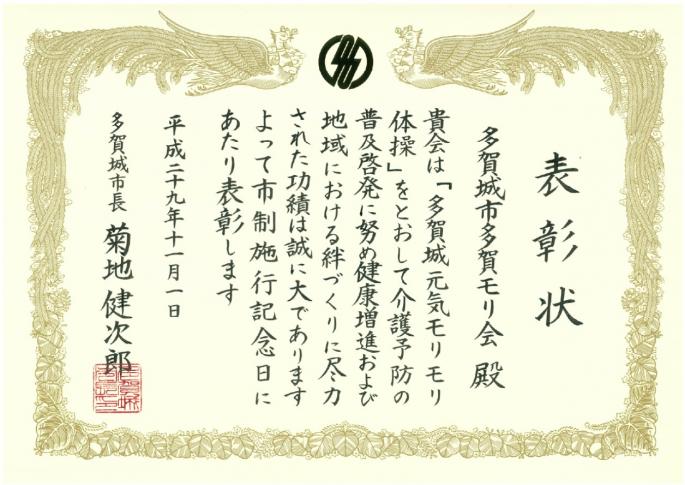 表彰状
多賀城市多賀モリ会 殿
貴会は「多賀城元気モリモリ
体操」をとおして介護予防の
普及啓発に努め健康増進および
地域における絆づくりに尽力
された功績は誠に大であります
よって市制施行記念日に
あたり表彰します
平成二十九年十一月一日
多賀城市長 菊地健次郎